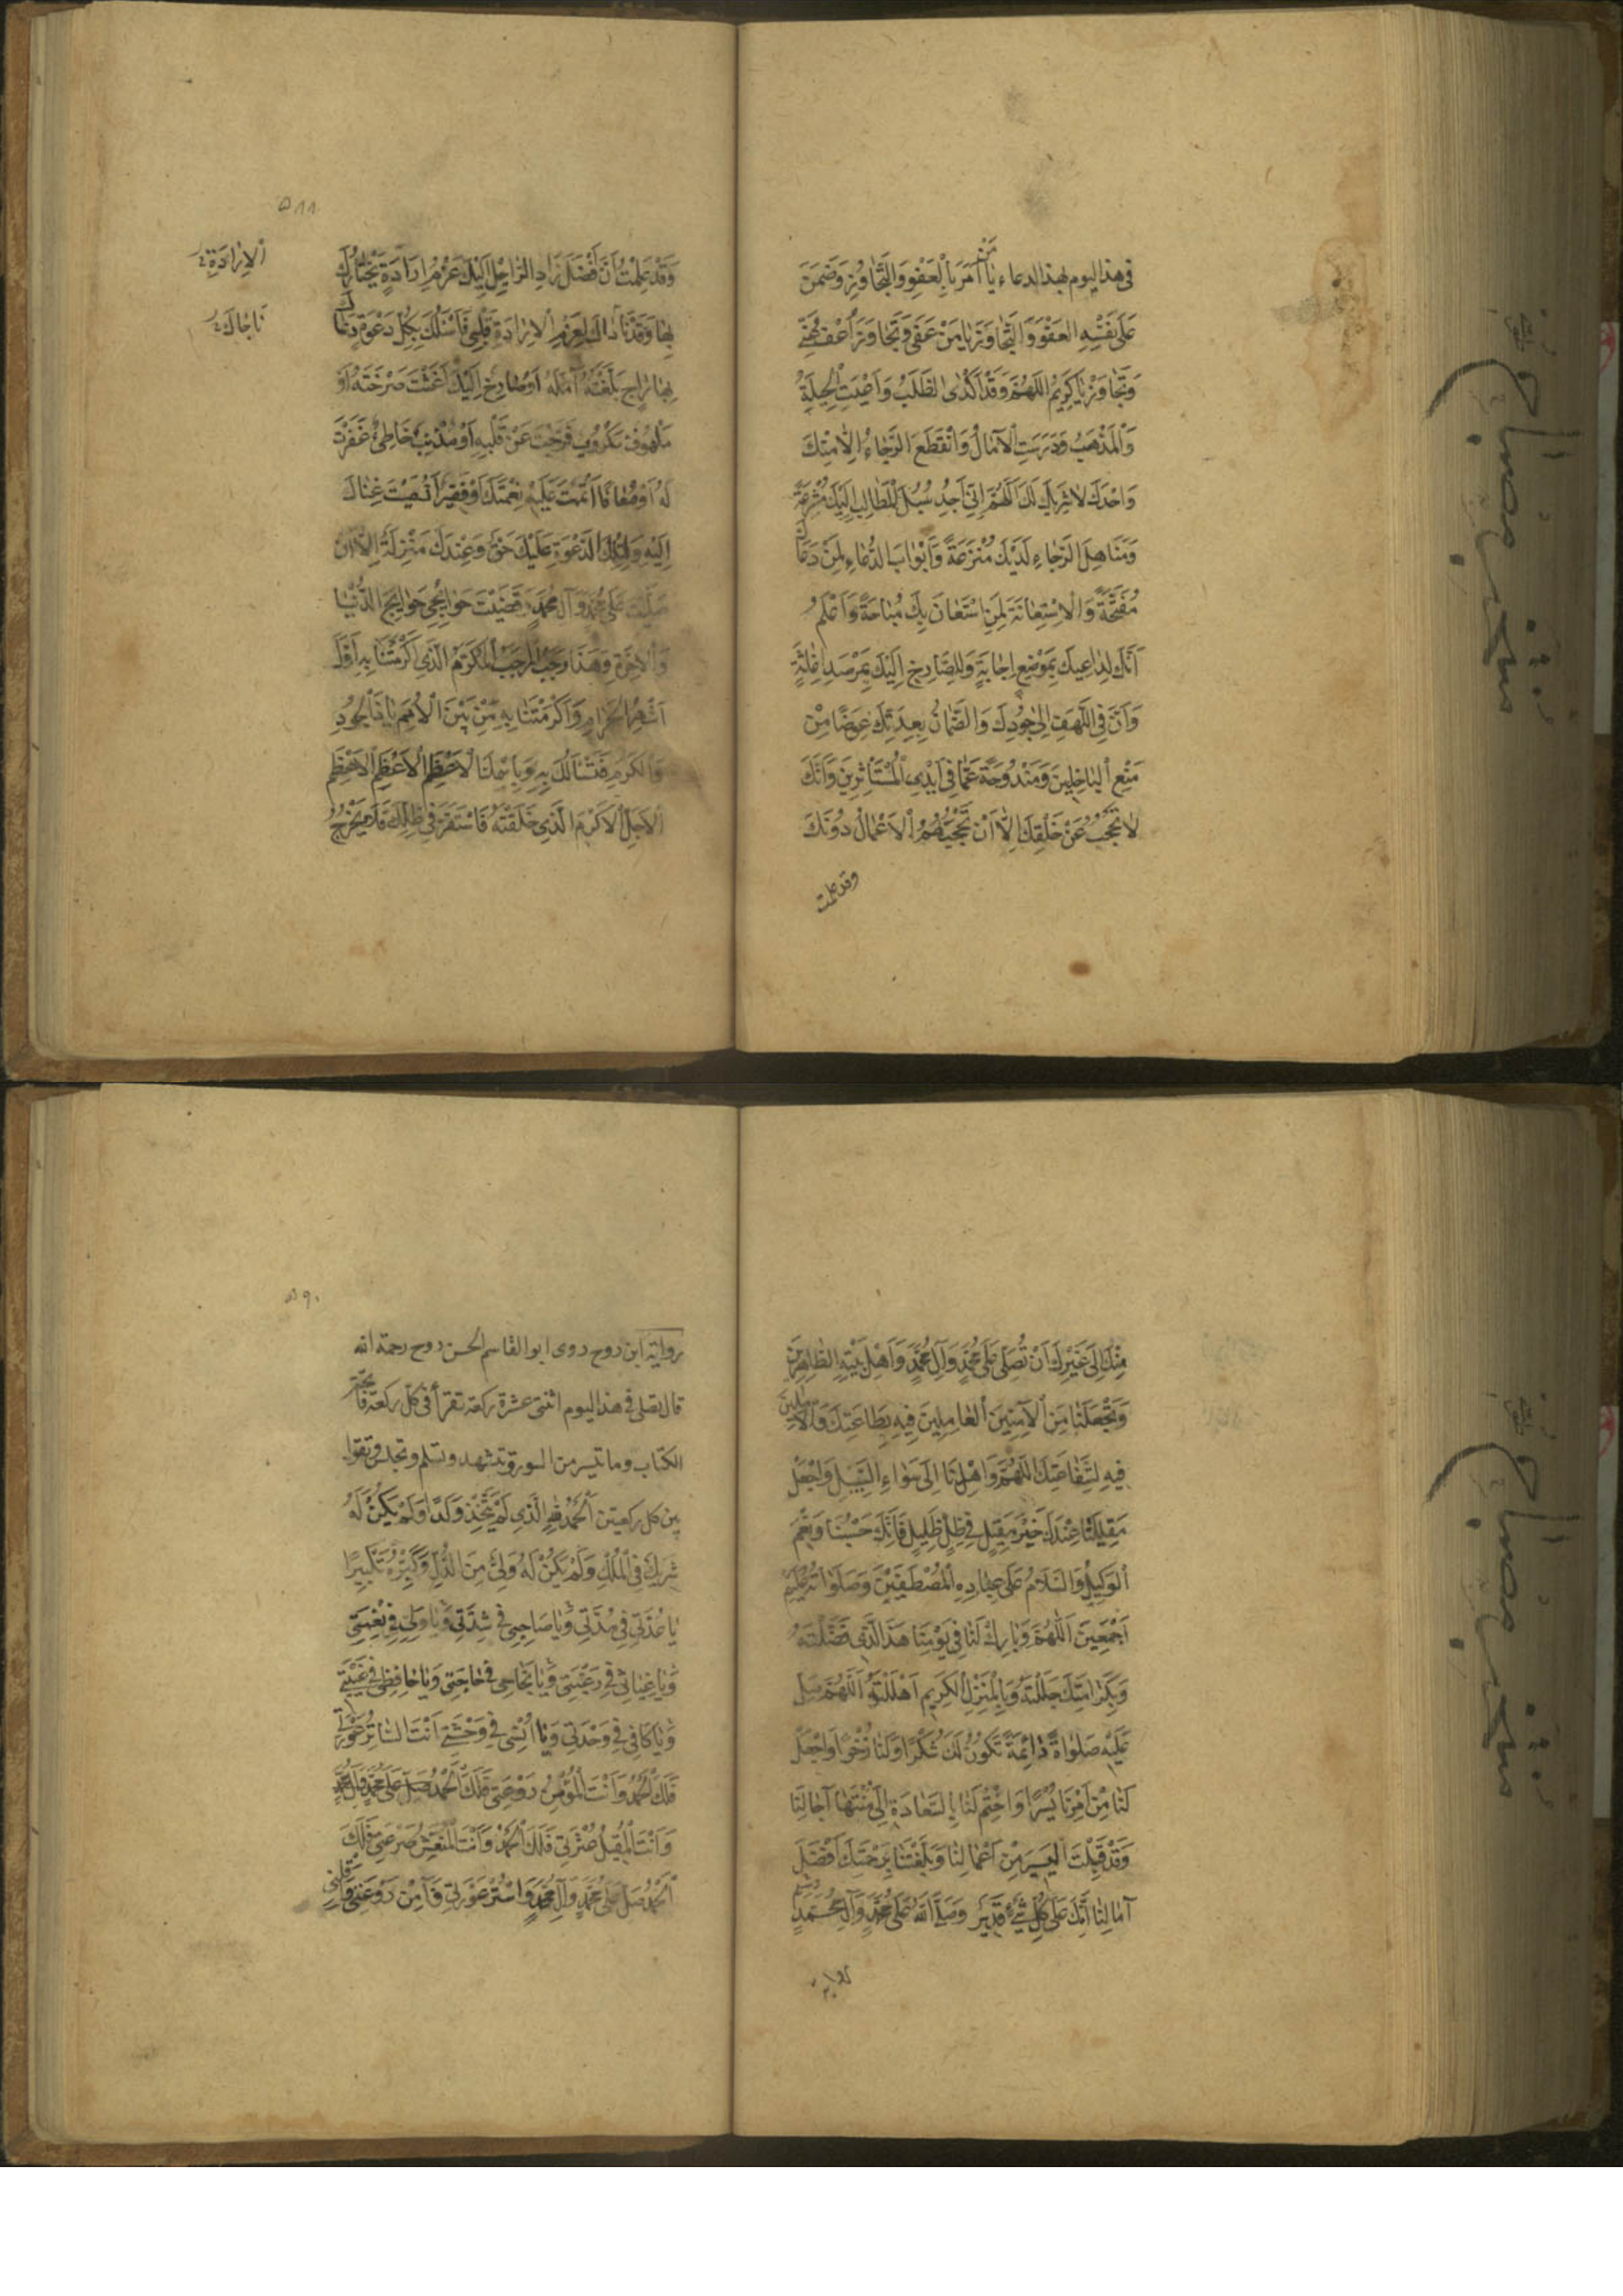 في هذا اليوم بهذا الدعاء يا مَنْ اَمَرَ بِالْعَفْوِ وَالتَّجاوُزِ وَضَمِنَ
عَلى نَفْسِهِ العَفْوَ وَالتَّجاوُزَ يا مَنْ عَفى وَتَجاوَزَ اُعْفُ عَنّي
وَتَجاوَزْ يا كَرِيمُ اللّهُمَّ وَقَدْ اَكْدَى الطَّلَبُ وَاَعْيَتِ الْحِيلَةُ
وَالْمَذْهَبُ وَدَرَسَتِ الْآمالُ وَانْقَطَعَ الرَّجاءُ اِلّا مِنْكَ
وَاحْدَكَ لا شَرِيكَ لَكَ اَللّهُمَّ اِنّي اَجِدُ سُبُلَ الْمَطالِبِ اِلَيْكَ مُشْرَعَةً
وَمَناهِلَ الرَّجاءِ لَدَيْكَ مُتْرَعَةً وَاَبْوابَ الدُّعاءِ لِمَنْ دَعاكَ
مُفَتَّحَةً وَالْاِسْتِعانَةَ لِمَنِ اسْتَعانَ بِكَ مُباحَةً وَاَعْلَمُ
اَنَّكَ لِداعِيكَ بِمَوْضِعِ اِجابَةٍ وَلِلصّارِخِ اِلَيْكَ بِمَرْصَدِ اِغاثَةٍ
وَاَنَّ فِي اللَّهَفِ اِلى جُودِكَ وَالضَّمانِ بِعِدَتِكَ عِوَضًا مِنْ
مَنْعِ الْباخِلِينَ وَمَنْدُوحَةً عَمّا في اَيْدِي الْمُسْتَأْثِرِينَ وَاَنَّكَ
لا تَحْجُبُ عَنْ خَلْقِكَ اِلّا اَنْ تَحْجُبَهُمُ الْاَعْمالُ دُونَكَ
وقد علمت
٥٨٨
وَقَدْ عَلِمْتُ اَنَّ اَفْضَلَ زادِ الرّاحِلِ اِلَيْكَ عَزْمُ اِرادَةٍ يَخْتارُكَ
بِها وَقَدْ ناداكَ لِعَزْمِ الْاِرادَةِ قَلْبي فَاَسْئَلُكَ بِكُلِّ دَعْوَةٍ دَعاكَ
الْاِرادَةِ
ناجاكَ
بِها راجٍ بَلَّغْتَهُ اَمَلَهُ اَوْ صارِخٌ اِلَيْكَ اَغَثْتَ صَرْخَتَهُ اَوْ
مَلْهُوفٌ مَكْرُوبٌ فَرَّجْتَ عَنْ قَلْبِهِ اَوْ مُذْنِبٌ خاطِئٌ غَفَرْتَ
لَهُ اَوْ مُعافًا اَتْمَمْتَ عَلَيْهِ نِعْمَتَكَ اَوْ فَقِيرٌ اَهْدَيْتَ غِناكَ
اِلَيْهِ وَلِتِلْكَ الدَّعْوَةِ عَلَيْكَ حَقٌّ وَعِنْدَكَ مَنْزِلَةٌ اِلّا اَنْ
صَلَّيْتَ عَلى مُحَمَّدٍ وَآلِ مُحَمَّدٍ وَقَضَيْتَ حَوائِجي حَوائِجَ الدُّنْيا
وَالْاخِرَةِ وَهذا رَجَبٌ الْمُرَجَّبُ الْمُكَرَّمُ الَّذي اَكْرَمْتَنا بِهِ اَوَّلُ
اَشْهُرِ الْحُرُمِ وَاَكْرَمْتَنا بِهِ مِنْ بَيْنِ الْاُمَمِ يا ذَا الْجُودِ
وَالْكَرَمِ فَنَسْئَلُكَ بِهِ وَبِاسْمِكَ الْاَعْظَمِ الْاَعْظَمِ الْاَعْظَمِ
الْاَجَلِّ الْاَكْرَمِ الَّذي خَلَقْتَهُ فَاسْتَقَرَّ في ظِلِّكَ فَلا يَخْرُجُ
مِنْكَ اِلى غَيْرِكَ اَنْ تُصَلِّيَ عَلى مُحَمَّدٍ وَآلِ مُحَمَّدٍ وَاَهْلِ بَيْتِهِ الطّاهِرِينَ
وَتَجْعَلَنا مِنَ الْآمِنِينَ الْعامِلِينَ فِيهِ بِطاعَتِكَ وَالْآمِلِينَ
فِيهِ لِشَفاعَتِكَ اللّهُمَّ وَاهْدِنا اِلى سَواءِ السَّبِيلِ وَاجْعَلْ
مَقِيلَنا عِنْدَكَ خَيْرَ مَقِيلٍ في ظِلٍّ ظَلِيلٍ فَاِنَّكَ حَسْبُنا وَنِعْمَ
الْوَكِيلُ وَالسَّلامُ عَلى عِبادِهِ الْمُصْطَفَيْنَ وَصَلَواتُهُ عَلَيْهِمْ
اَجْمَعِينَ اَللّهُمَّ وَبارِكْ لَنا في يَوْمِنا هذَا الَّذي فَضَّلْتَهُ
وَبِكَرامَتِكَ جَلَّلْتَهُ وَبِالْمَنْزِلِ الْكَرِيمِ اَحْلَلْتَهُ اَللّهُمَّ صَلِّ
عَلَيْهِ صَلواةً دائِمَةً تَكُونُ لَكَ شُكْرًا وَلَنا ذُخْرًا وَاجْعَلْ
لَنا مِنْ اَمْرِنا يُسْرًا وَاخْتِمْ لَنا بِالسَّعادَةِ اِلى مُنْتَهى آجالِنا
وَقَدْ قَبِلْتَ الْيَسِيرَ مِنْ اَعْمالِنا وَبَلَّغْتَنا بِرَحْمَتِكَ اَفْضَلَ
آمالِنا اِنَّكَ عَلى كُلِّ شَيْءٍ قَدِيرٌ وَصَلَّى اللّهُ عَلى مُحَمَّدٍ وَآلِهِ
٥٩٠
رواية ابن روح روى ابو القاسم الحسن روح رحمة الله
قال يصلى في هذا اليوم اثنتى عشرة ركعة تقرأ في كلّ ركعة فاتحة
الكتاب وما تيسر من السورة وتتشهد وتسلم وتجلس وتقول
بين كل ركعتين اَلْحَمْدُ لِلّهِ الَّذي لَمْ يَتَّخِذْ وَلَدًا وَلَمْ يَكُنْ لَهُ
شَرِيكٌ فِي الْمُلْكِ وَلَمْ يَكُنْ لَهُ وَلِيٌّ مِنَ الذُّلِّ وَكَبِّرْهُ تَكْبِيرًا
يا عُدَّتي في مُدَّتي وَيا صاحِبي في شِدَّتي وَيا وَلِيّي في نِعْمَتي
وَيا غِياثي في رَغْبَتي وَيا نَجاحي في حاجَتي وَيا حافِظي في غَيْبَتي
وَيا كافِيَّ في وَحْدَتي وَيا اُنْسي في وَحْشَتي اَنْتَ السّاتِرُ عَوْرَتي
فَلَكَ الْحَمْدُ وَاَنْتَ الْمُؤْمِنُ رَوْعَتي فَلَكَ الْحَمْدُ صَلِّ عَلى مُحَمَّدٍ وَآلِ مُحَمَّدٍ
وَاَنْتَ الْمُقِيلُ عَثْرَتي فَلَكَ الْحَمْدُ وَاَنْتَ الْمُنْعِشُ صَرْعَتي فَلَكَ
الْحَمْدُ صَلِّ عَلى مُحَمَّدٍ وَآلِ مُحَمَّدٍ وَاسْتُرْ عَوْرَتي وَآمِنْ رَوْعَتي وَاَقِلْني
مصباح